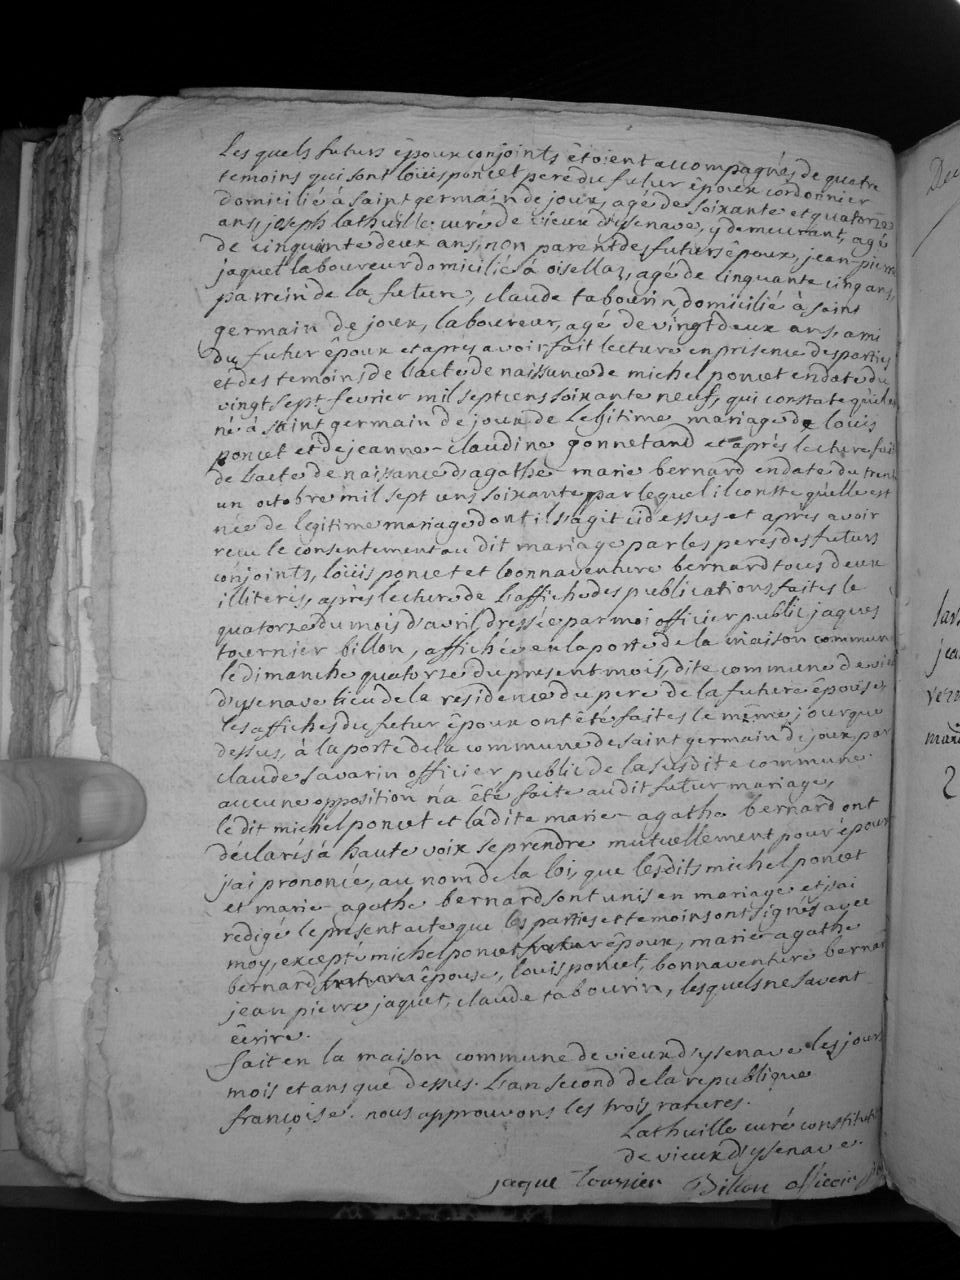 Les quels futurs êpoux conjoints êtoient accompagnés de quatre
temoins qui sont loüis poncet pere du futur êpoux cordonnier
domicilié à saint germain de joux, agé de soixante et quatorze
ans, joseph lathuille curé de vieux d'ysenave, y demeurant, agé
de cinquante deux ans, non parent des futurs êpoux, jean pierre
jaquet laboureur domicilié à oisellaz, agé de cinquante cinq ans,
parrein de la future, claude tabourin domicilié à saint
germain de joux, laboureur, agé de vingt deux ans, ami
du futur êpoux et après avoir fait lecture en présence des parties
et des temoins de l'acte de naissance de michel poncet en date du
vingt sept fevrier mil sept cens soixante neuf, qui constate qu'il est
né à saint germain de joux de legitime mariage de loüis
poncet et de jeanne-claudine gonnetand et après lecture fait
de l'acte de naissance d'agathe marie bernard en date du trente
un octobre mil sept cens soixante par lequel il conste qu'elle est
née de legitime mariage dont il s'agit ci dessus et après avoir
recu le consentement au dit mariage par les peres des futurs
conjoints, loüis poncet et bonnaventure bernard tous deux
illiterés, après lecture de l'affiche des publications faites le
quatorze du mois d'avril dressée par moi officier public jaques
tournier billon, affichée en la porte de la maison commune
le dimanche quatorze du present mois, dite commune de vieux
d'ysenave lieu de la residence du pere de la future êpouse,
les affiches du futur êpoux ont êté faites le même jour que
dessus, à la porte de la commune de saint germain de joux par
claude savarin officier public de la susdite commune
aucune opposition n'a êté faite audit futur mariage,
le dit michel poncet et la dite marie agathe bernard ont
déclarés à haute voix se prendre mutuellement pour époux
j'ai prononcé, au nom de la loi, que lesdits michel poncet
et marie agathe bernard sont unis en mariage et j'ai
redigé le present acte que les parties et temoins ont signés avec
moy, excepté michel poncet futur êpoux, marie agathe
bernard future êpouse, loüis poncet, bonnaventure bernard
jean pierre jaquet, claude tabourin, lesquels ne savent
êcrire.
fait en la maison commune de vieux d'ysenave les jours
mois et ans que dessus. L'an second de la republique
françoise. nous approuvons les trois ratures.
Lathuille curé constitut
de vieux d'ysenave.
jaque tournier Billon officier